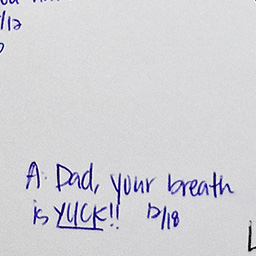 /12
A: Dad, your breath
is YUCK!! 12/18